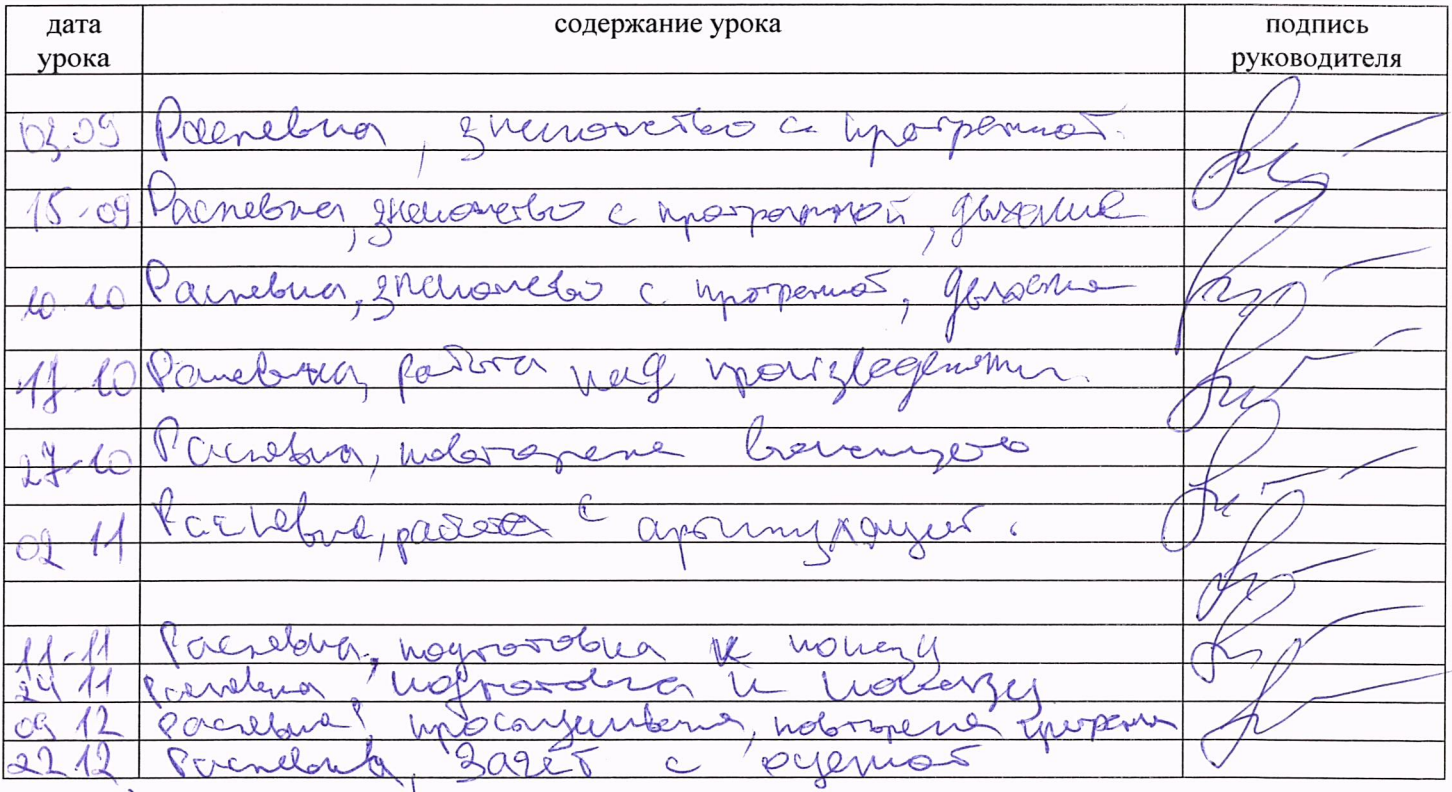 дата урока содержание урока подпись руководителя
03.09 Распевка, знакомство с программой.
15.09 Распевка, знакомство с программой, дыхание
10.10 Распевка, знакомство с программой, дыхание
17.10 Распевка, работа над произведениями.
27.10 Распевка, повторение
02.11 Распевка, работа с артикуляцией.
11.11 Распевка, подготовка к показу
24.11 Распевка, подготовка к показу
09.12 распевка, прослушивание, повторение программы
22.12 Распевка, зачёт с оценкой